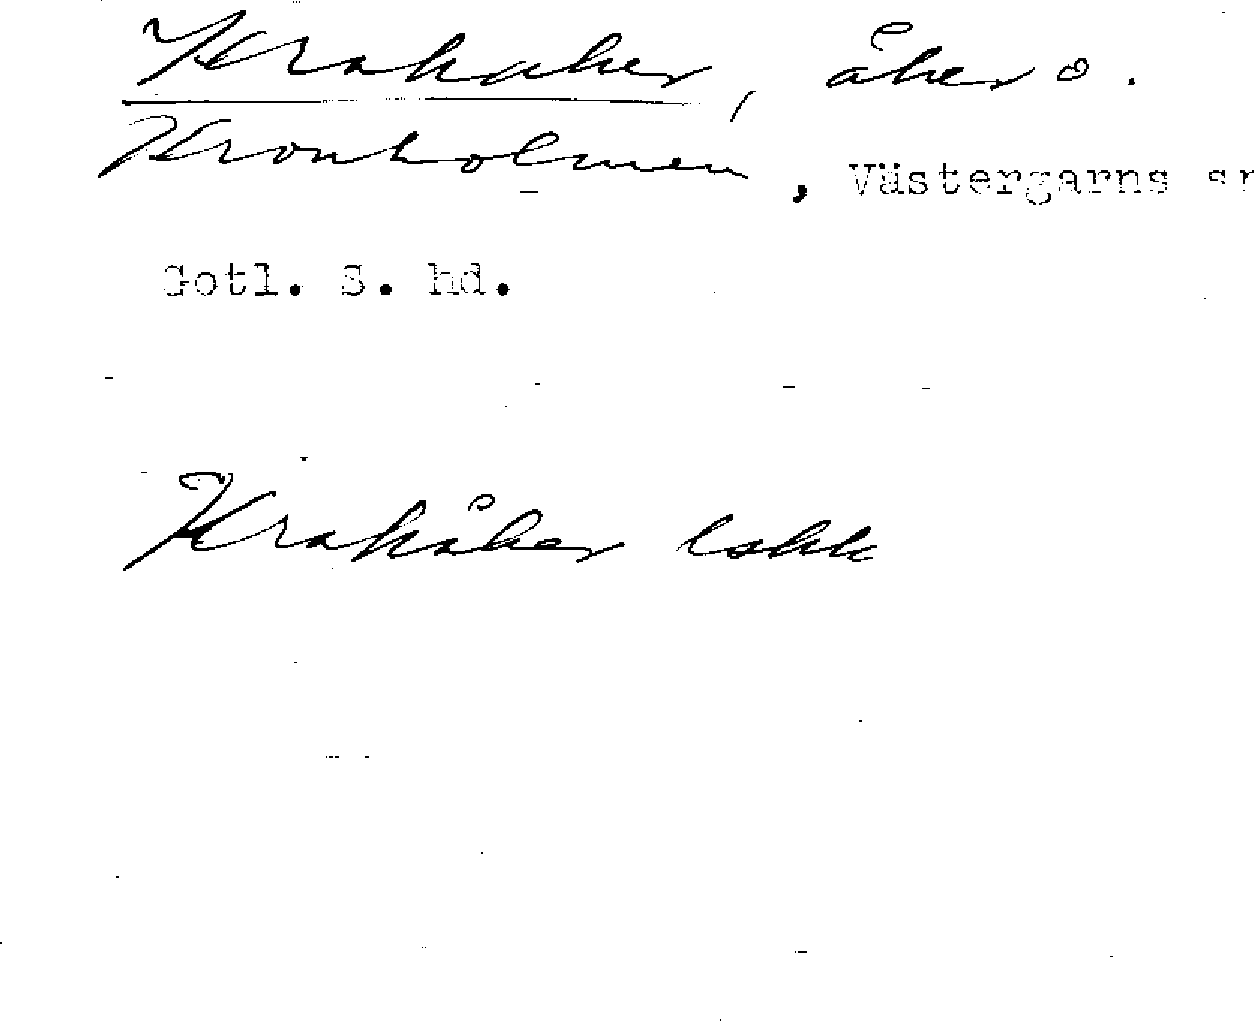 Krakaker, åker o.
Kronholmen, Västergarns sn
Gotl. S. hd.
Krakåker